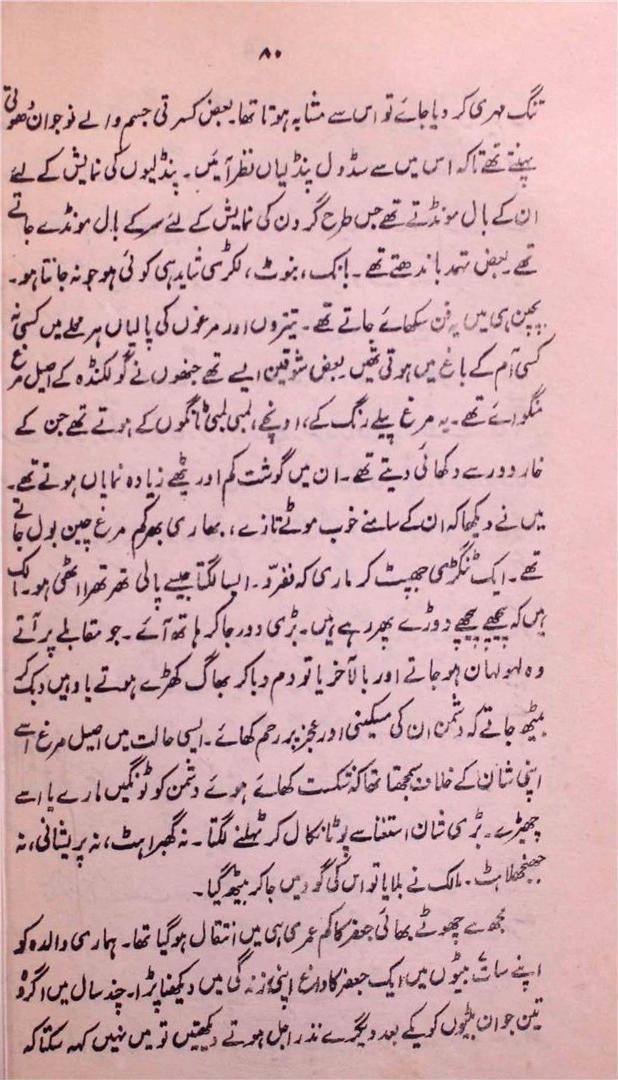 ۸۰
تنگ مہری کر دیا جائے تو اس سے مشابہ ہوتا تھا۔ بعض کسرتی جسم والے نوجوان دھوتی
پہنتے تھے تاکہ اس میں سے سڈول پنڈلیاں نظر آئیں۔ پنڈلیوں کی نمایش کے لئے
ان کے بال مونڈتے تھے جس طرح گردن کی نمایش کے لئے سر کے بال مونڈے جاتے
تھے۔ بعض تہمد باندھتے تھے۔ بانک، بنوٹ، لکڑی شاید ہی کوئی ہو جو نہ جانتا ہو۔
بچپن ہی میں یہ فن سکھائے جاتے تھے۔ تیتروں اور مرغوں کی پالیاں ہر محلے میں کسی نہ
کسی آم کے باغ میں ہوتی تھیں بعض شوقین ایسے تھے جنھوں نے گولکنڈہ کے اصیل مرغ
منگوائے تھے۔ یہ مرغ پیلے رنگ کے، اونچے، لمبی لمبی ٹانگوں کے ہوتے تھے جن کے
خار دور سے دکھائی دیتے تھے۔ ان میں گوشت کم اور پٹھے زیادہ نمایاں ہوتے تھے۔
میں نے دیکھا کہ ان کے سامنے خوب موٹے تازے، بھاری بھرکم مرغ چیں بول جاتے
تھے۔ ایک ٹنگڑی جھپٹ کر ماری کہ نفرّو۔ ایسا لگتا جیسے پالی تھرتھرا اٹھی ہو۔ مالک
ہیں کہ پیچھے پیچھے دوڑے پھر رہے ہیں۔ بڑی دور جا کر ہاتھ آئے۔ جو مقابلے پر آتے
وہ لہولہان ہو جاتے اور بالآخر یا تو دم دبا کر بھاگ کھڑے ہوتے یا وہیں دبک کے
بیٹھ جاتے کہ دشمن ان کی مسکینی اور عجز پر رحم کھائے۔ ایسی حالت میں اصیل مرغ اسے
اپنی شان کے خلاف سمجھتا تھا کہ شکست کھائے ہوئے دشمن کو ٹونگیں مارے یا اسے
چھیڑے۔ بڑی شان استغنا سے پوٹا نکال کر ٹہلنے لگتا۔ نہ گھبراہٹ، نہ پریشانی، نہ
جھنجھلاہٹ۔ مالک نے بلایا تو اس کی گود میں جا کر بیٹھ گیا۔
مجھ سے چھوٹے بھائی جعفر کا کم عمری ہی میں انتقال ہو گیا تھا۔ ہماری والدہ کو
اپنے سات بیٹوں میں ایک جعفر کا داغ اپنی زندگی میں دیکھنا پڑا۔ چند سال میں اگر وہ
تین جوان بیٹوں کو یکے بعد دیگرے نذر اجل ہوتے دیکھتیں تو میں نہیں کہہ سکتا کہ